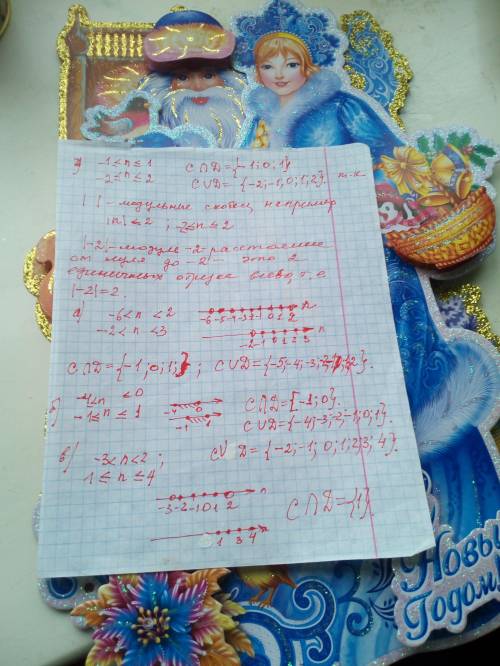 г) -1≤n≤1 С∩D={-1;0;1}
-2≤n≤2 С∪D={-2;-1;0;1;2}. т.к
| | - модульные скобки, например
|n|≤2, -2≤n≤2
|-2| - модуль -2 - расстояние
от нуля до -2 - это 2
единичных отрезка влево, т.е
|-2|=2.
а) -6<n<2 -6 -5 -4 -3 -2 -1 0 1 2 n
-2<n<3 -2 -1 0 1 2 3 n
С∩D={-1;0;1;}; С∪D={-5;-4;-3;
б) -4≤n≤0 -4 0 С∩D=[-1;0}.
-1≤n≤1 -1 1 С∪D={-4;-3;-2;-1;0;1}.
в) -3<n<2; С∪D={-2;-1;0;1;2;3;4}.
1≤n≤4
-3 -2 -1 0 1 2 n
С∩D={1}.
1 3 4 n
Новым
Годом!